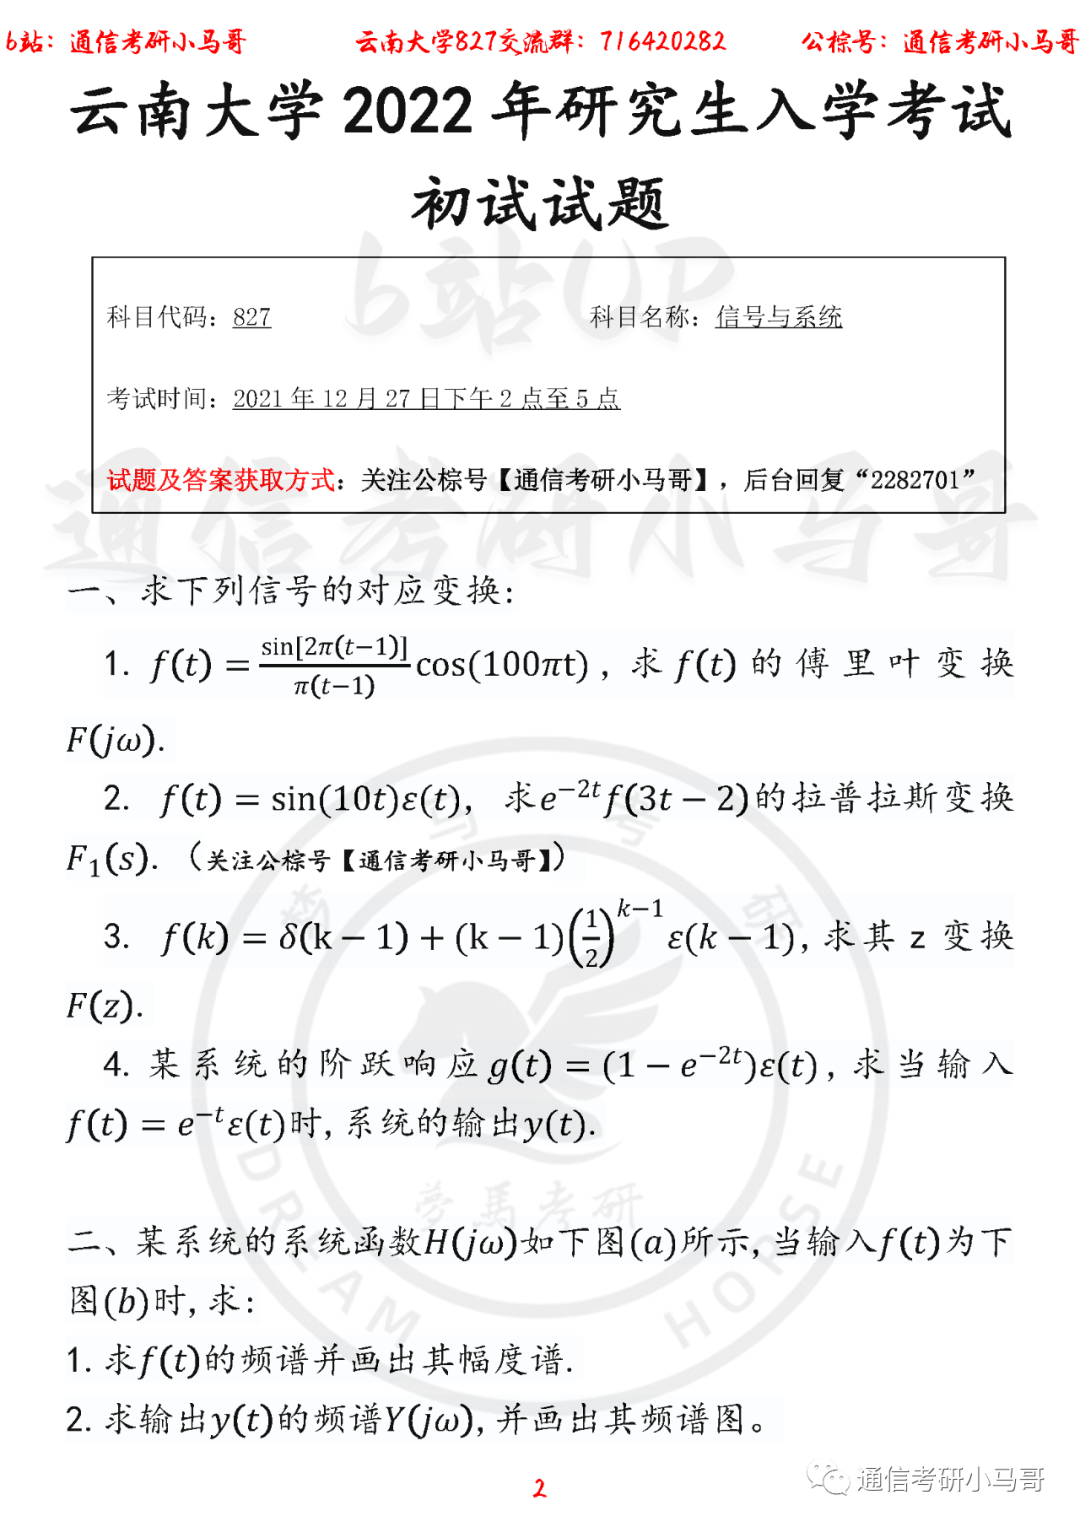 b站：通信考研小马哥 云南大学827交流群：716420282 公棕号：通信考研小马哥
云南大学 2022 年研究生入学考试
初试试题
科目代码：827 科目名称：信号与系统
考试时间：2021 年 12 月 27 日下午 2 点至 5 点
试题及答案获取方式：关注公棕号【通信考研小马哥】，后台回复“2282701”
一、求下列信号的对应变换：
1. f(t) = sin[2π(t−1)]/π(t−1) cos(100πt)，求 f(t) 的傅里叶变换
F(jω).
2. f(t) = sin(10t)ε(t)，求e^{−2t}f(3t − 2)的拉普拉斯变换
F₁(s).（关注公棕号【通信考研小马哥】）
3. f(k) = δ(k − 1) + (k − 1)(1/2)^{k−1} ε(k − 1)，求其 z 变换
F(z).
4. 某系统的阶跃响应 g(t) = (1 − e^{−2t})ε(t)，求当输入
f(t) = e^{−t}ε(t)时，系统的输出y(t).
二、某系统的系统函数H(jω)如下图(a)所示，当输入f(t)为下
图(b)时，求：
1. 求f(t)的频谱并画出其幅度谱.
2. 求输出y(t)的频谱Y(jω)，并画出其频谱图。
2
通信考研小马哥
b站UP
通信考研小马哥
梦马考研
夢馬考研
DREAM HORSE